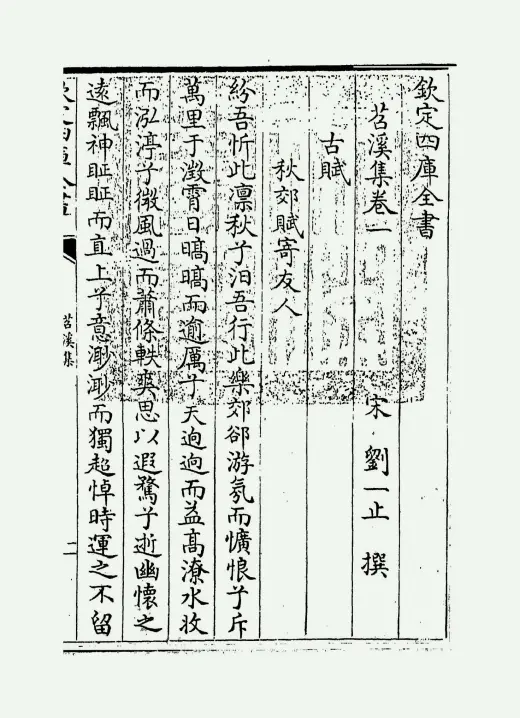 欽定四庫全書
苕溪集卷一
宋 劉一止 撰
古賦
秋郊賦寄友人
紛吾忻此凛秋兮洎吾行此樂郊郤游氛而懭悢兮斥
萬里于澂霄日暠暠而逾厲兮天逈逈而益髙潦水收
而泓渟兮微風過而蕭條軼爽思以遐騖兮逝幽懷之
逺飄神眐眐而直上兮意渺渺而獨超悼時運之不留
欽定四庫全書
苕溪集